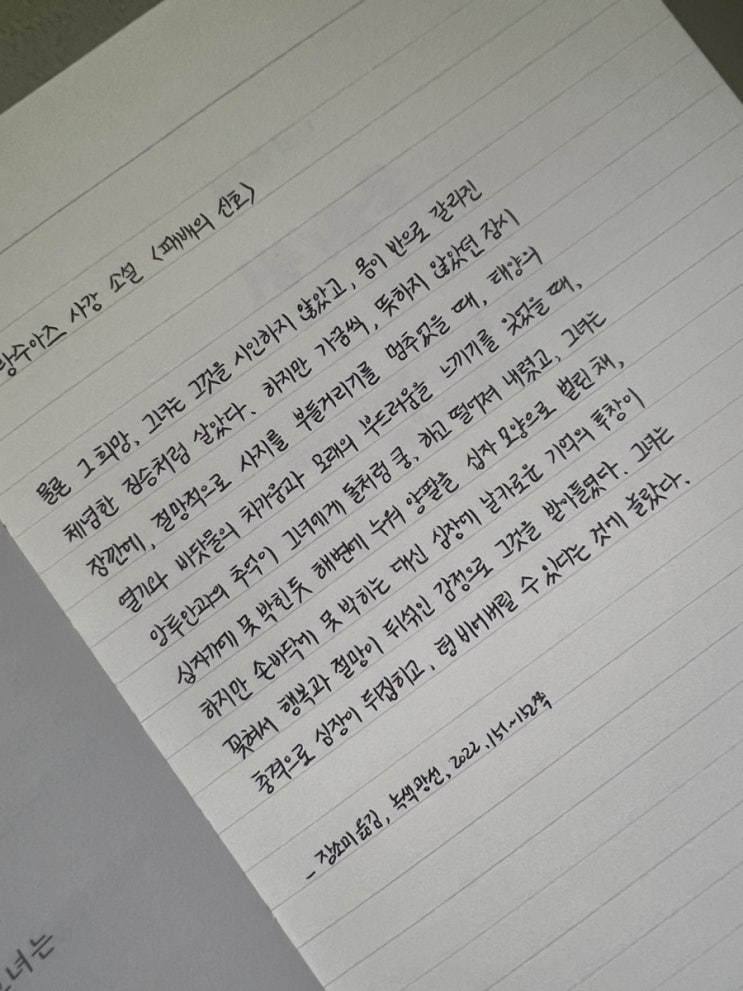 랑수아즈 사강 소설 <패배의 신호>
물론 그 희망, 그녀는 그것을 시인하지 않았고, 몸이 반으로 갈라진
체념한 짐승처럼 살았다. 하지만 가끔씩, 뜻하지 않았던 잠시
잠깐에, 절망적으로 사지를 부들거리기를 멈추었을 때, 태양의
열기와 바닷물의 차가움과 모래의 부드러움을 느끼기를 잊었을 때,
앙투안과의 추억이 그녀에게 돌처럼 쿵, 하고 떨어져 내렸고, 그녀는
십자가에 못 박힌듯 해변에 누워 양팔을 십자 모양으로 벌린 채,
하지만 손바닥에 못 박하는 대신 심장에 날카로운 기억의 투창이
꽂혀서 행복과 절망이 뒤섞인 감정으로 그것을 받아들였다. 그녀는
충격으로 심장이 뒤집히고, 텅 비어버릴 수 있다는 것에 놀랐다.
- 장소미 옮김, 녹색광선, 2022, 151~152쪽
녀는